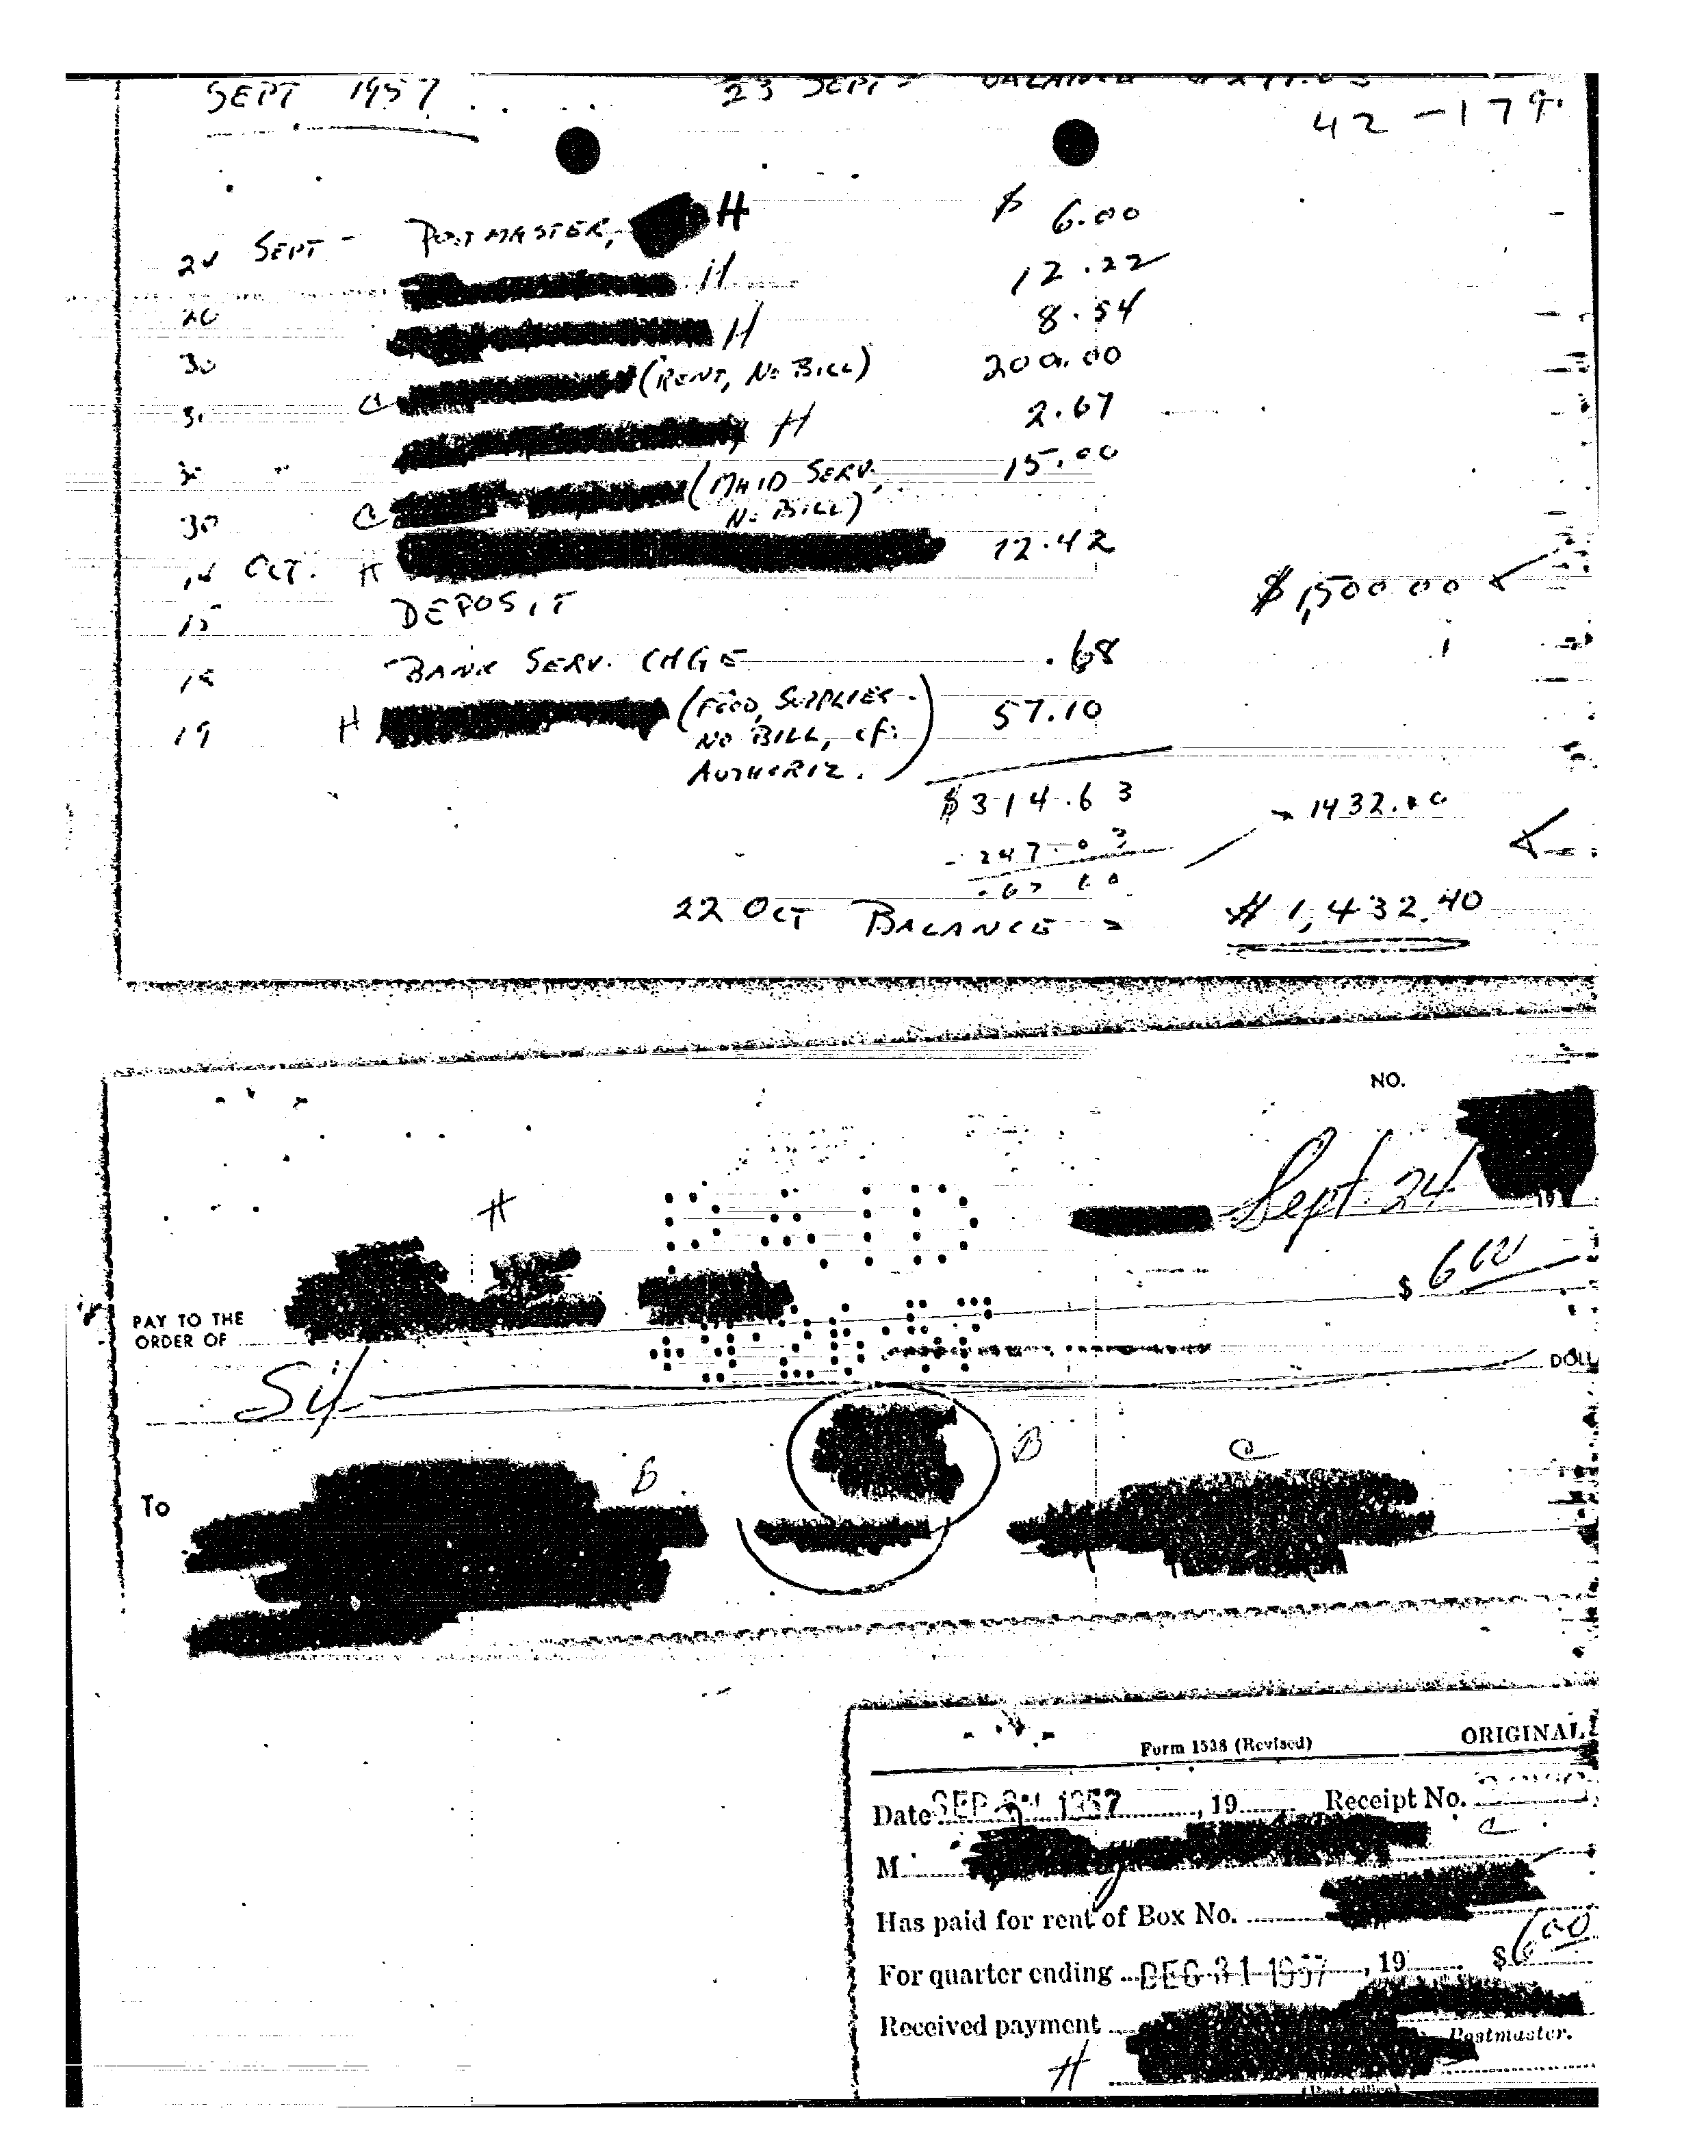 SEPT 1957 23 SEPT - BALANCE
42-179
24 SEPT - POSTMASTER, H $ 6.00
H 12.22
H 8.54
30 C (RENT, NO BILL) 200.00
H 2.67
30 C (MAID SERV, NO BILL) 15.00
14 OCT. H 12.42
15 DEPOSIT $1,500.00
BANK SERV. CHGE .68
19 H (FOOD, SUPPLIES - 57.10
NO BILL, cf.
AUTHORIZ.)
$314.63 1432.40
- 247.03
67 60
22 OCT BALANCE = $ 1,432.40
NO.
H Sept. 24
19
PAY TO THE
ORDER OF $ 6 00
Six DOLL
B B C
To
Form 1538 (Revised) ORIGINAL
Date SEP 1957, 19 Receipt No.
C
M
Has paid for rent of Box No.
For quarter ending DEC 31 1957, 19 $6.00
Received payment
Postmaster.
H
(Post office)